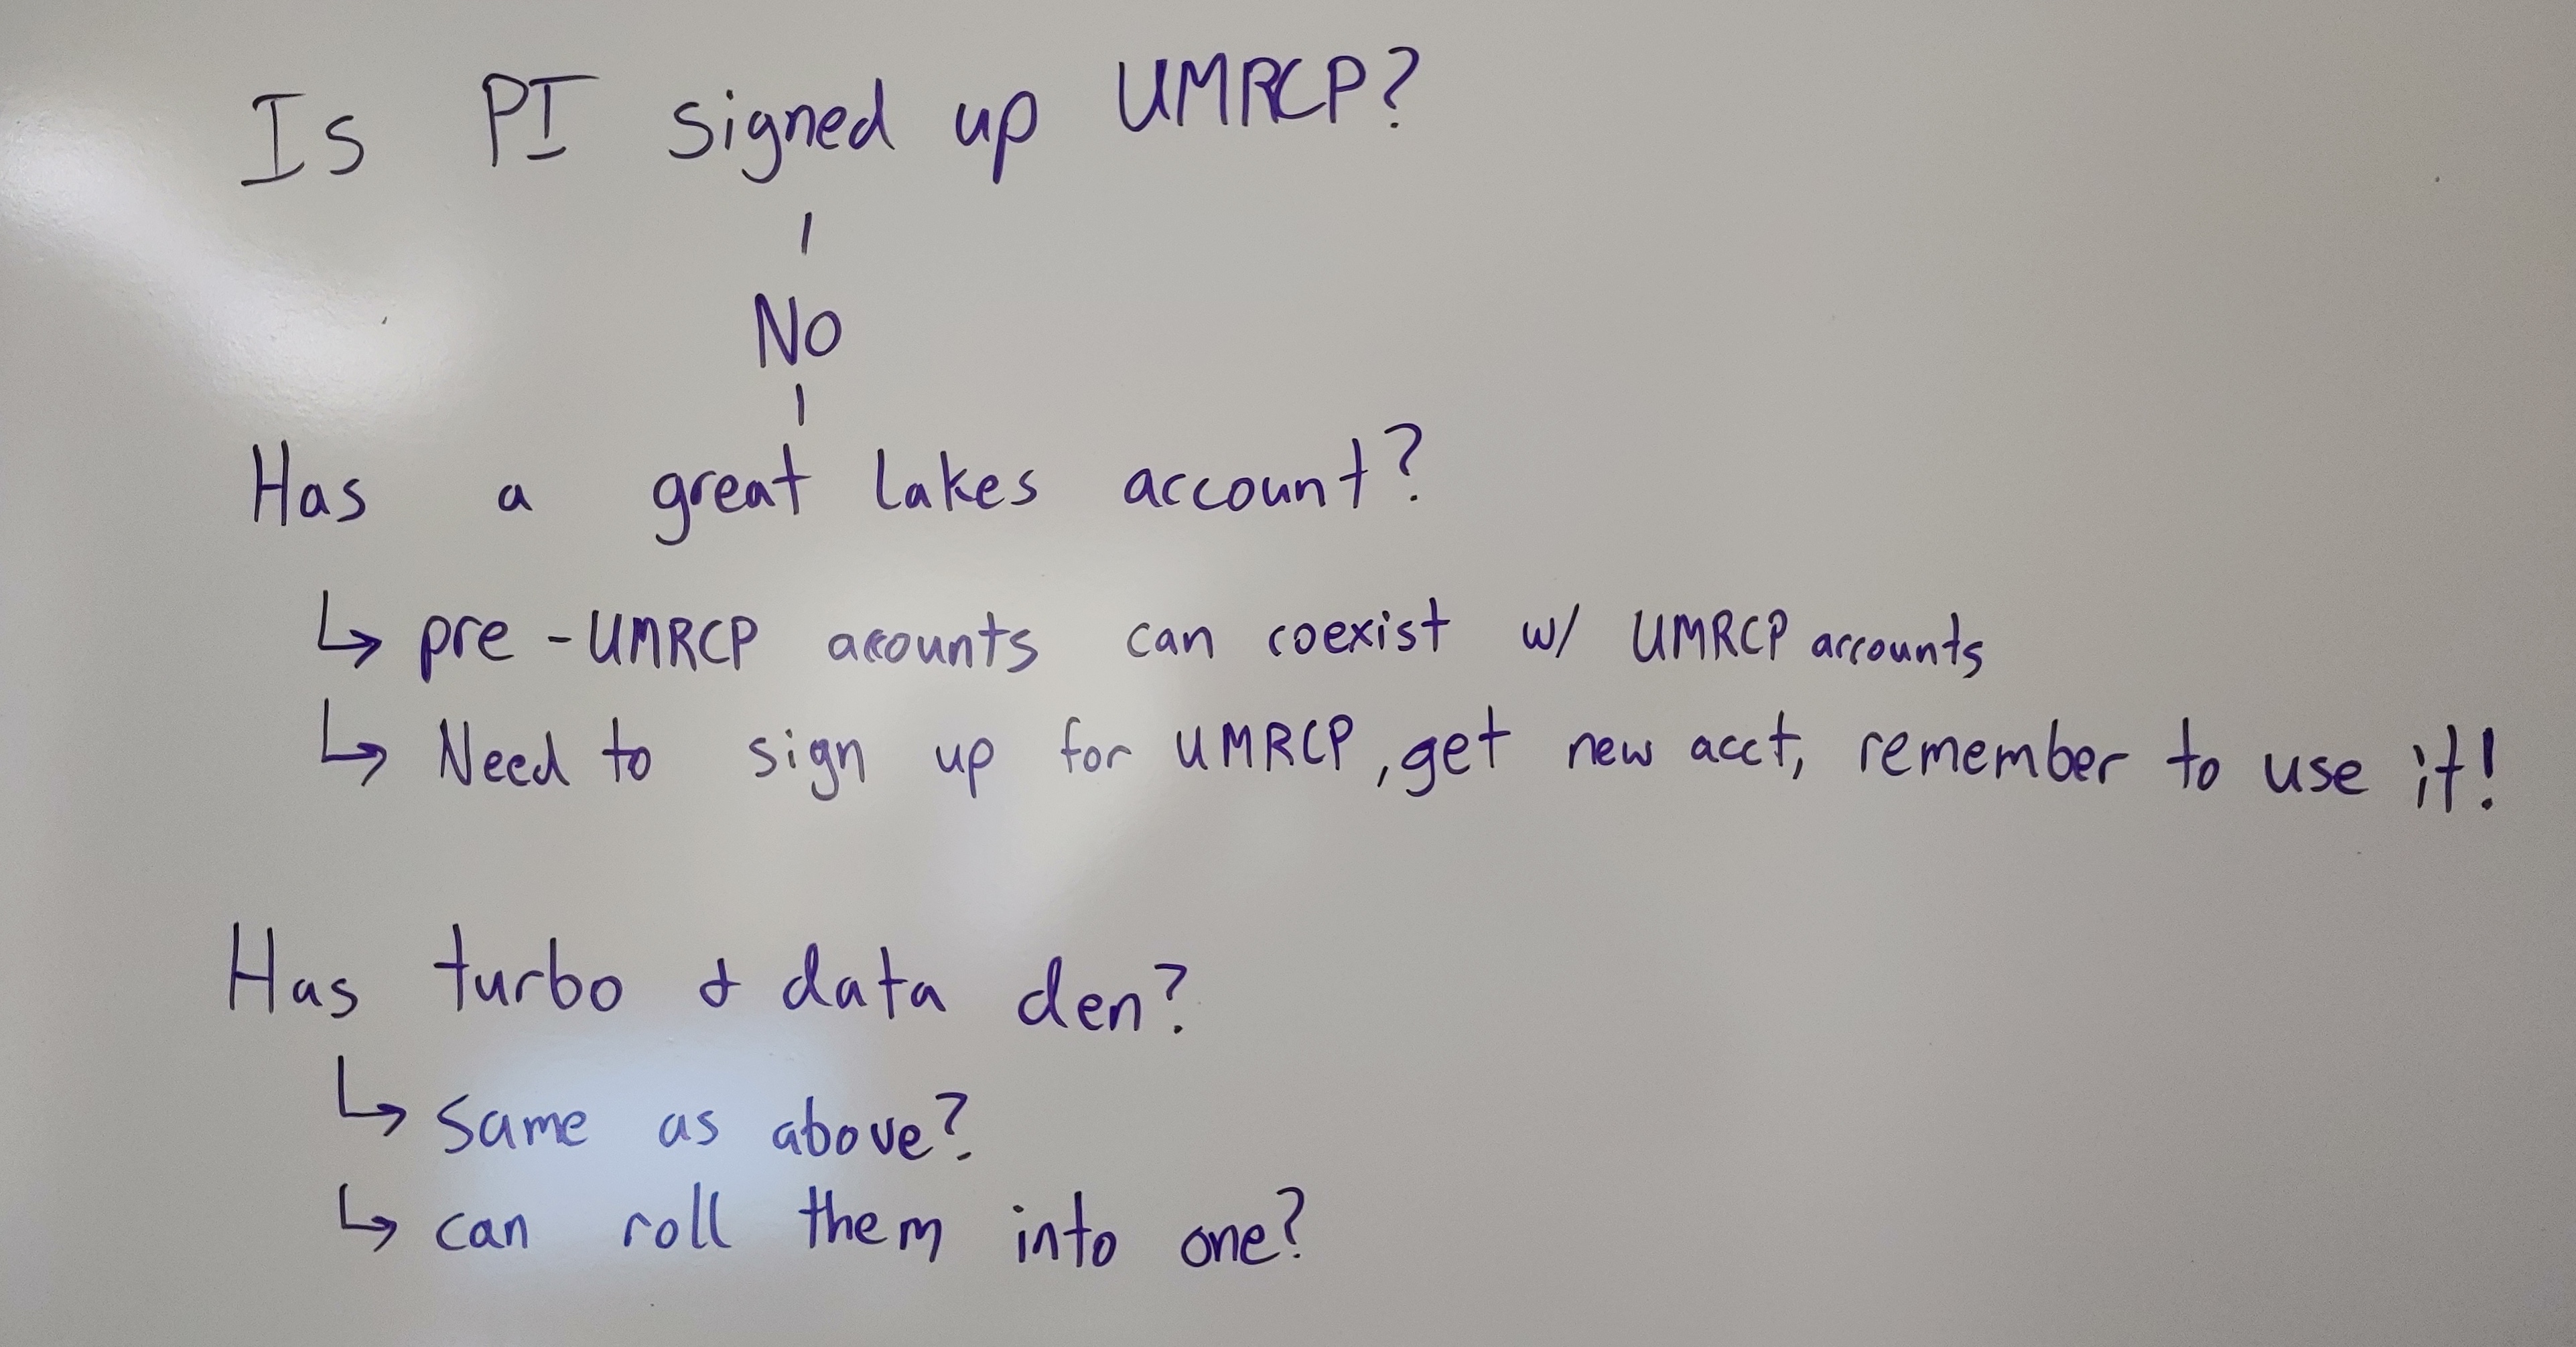 Is PI signed up UMRCP?
No
Has a great lakes account?
↳ pre-UMRCP acounts can coexist w/ UMRCP accounts
↳ Need to sign up for UMRCP, get new acct, remember to use it!
Has turbo & data den?
↳ same as above?
↳ can roll them into one?